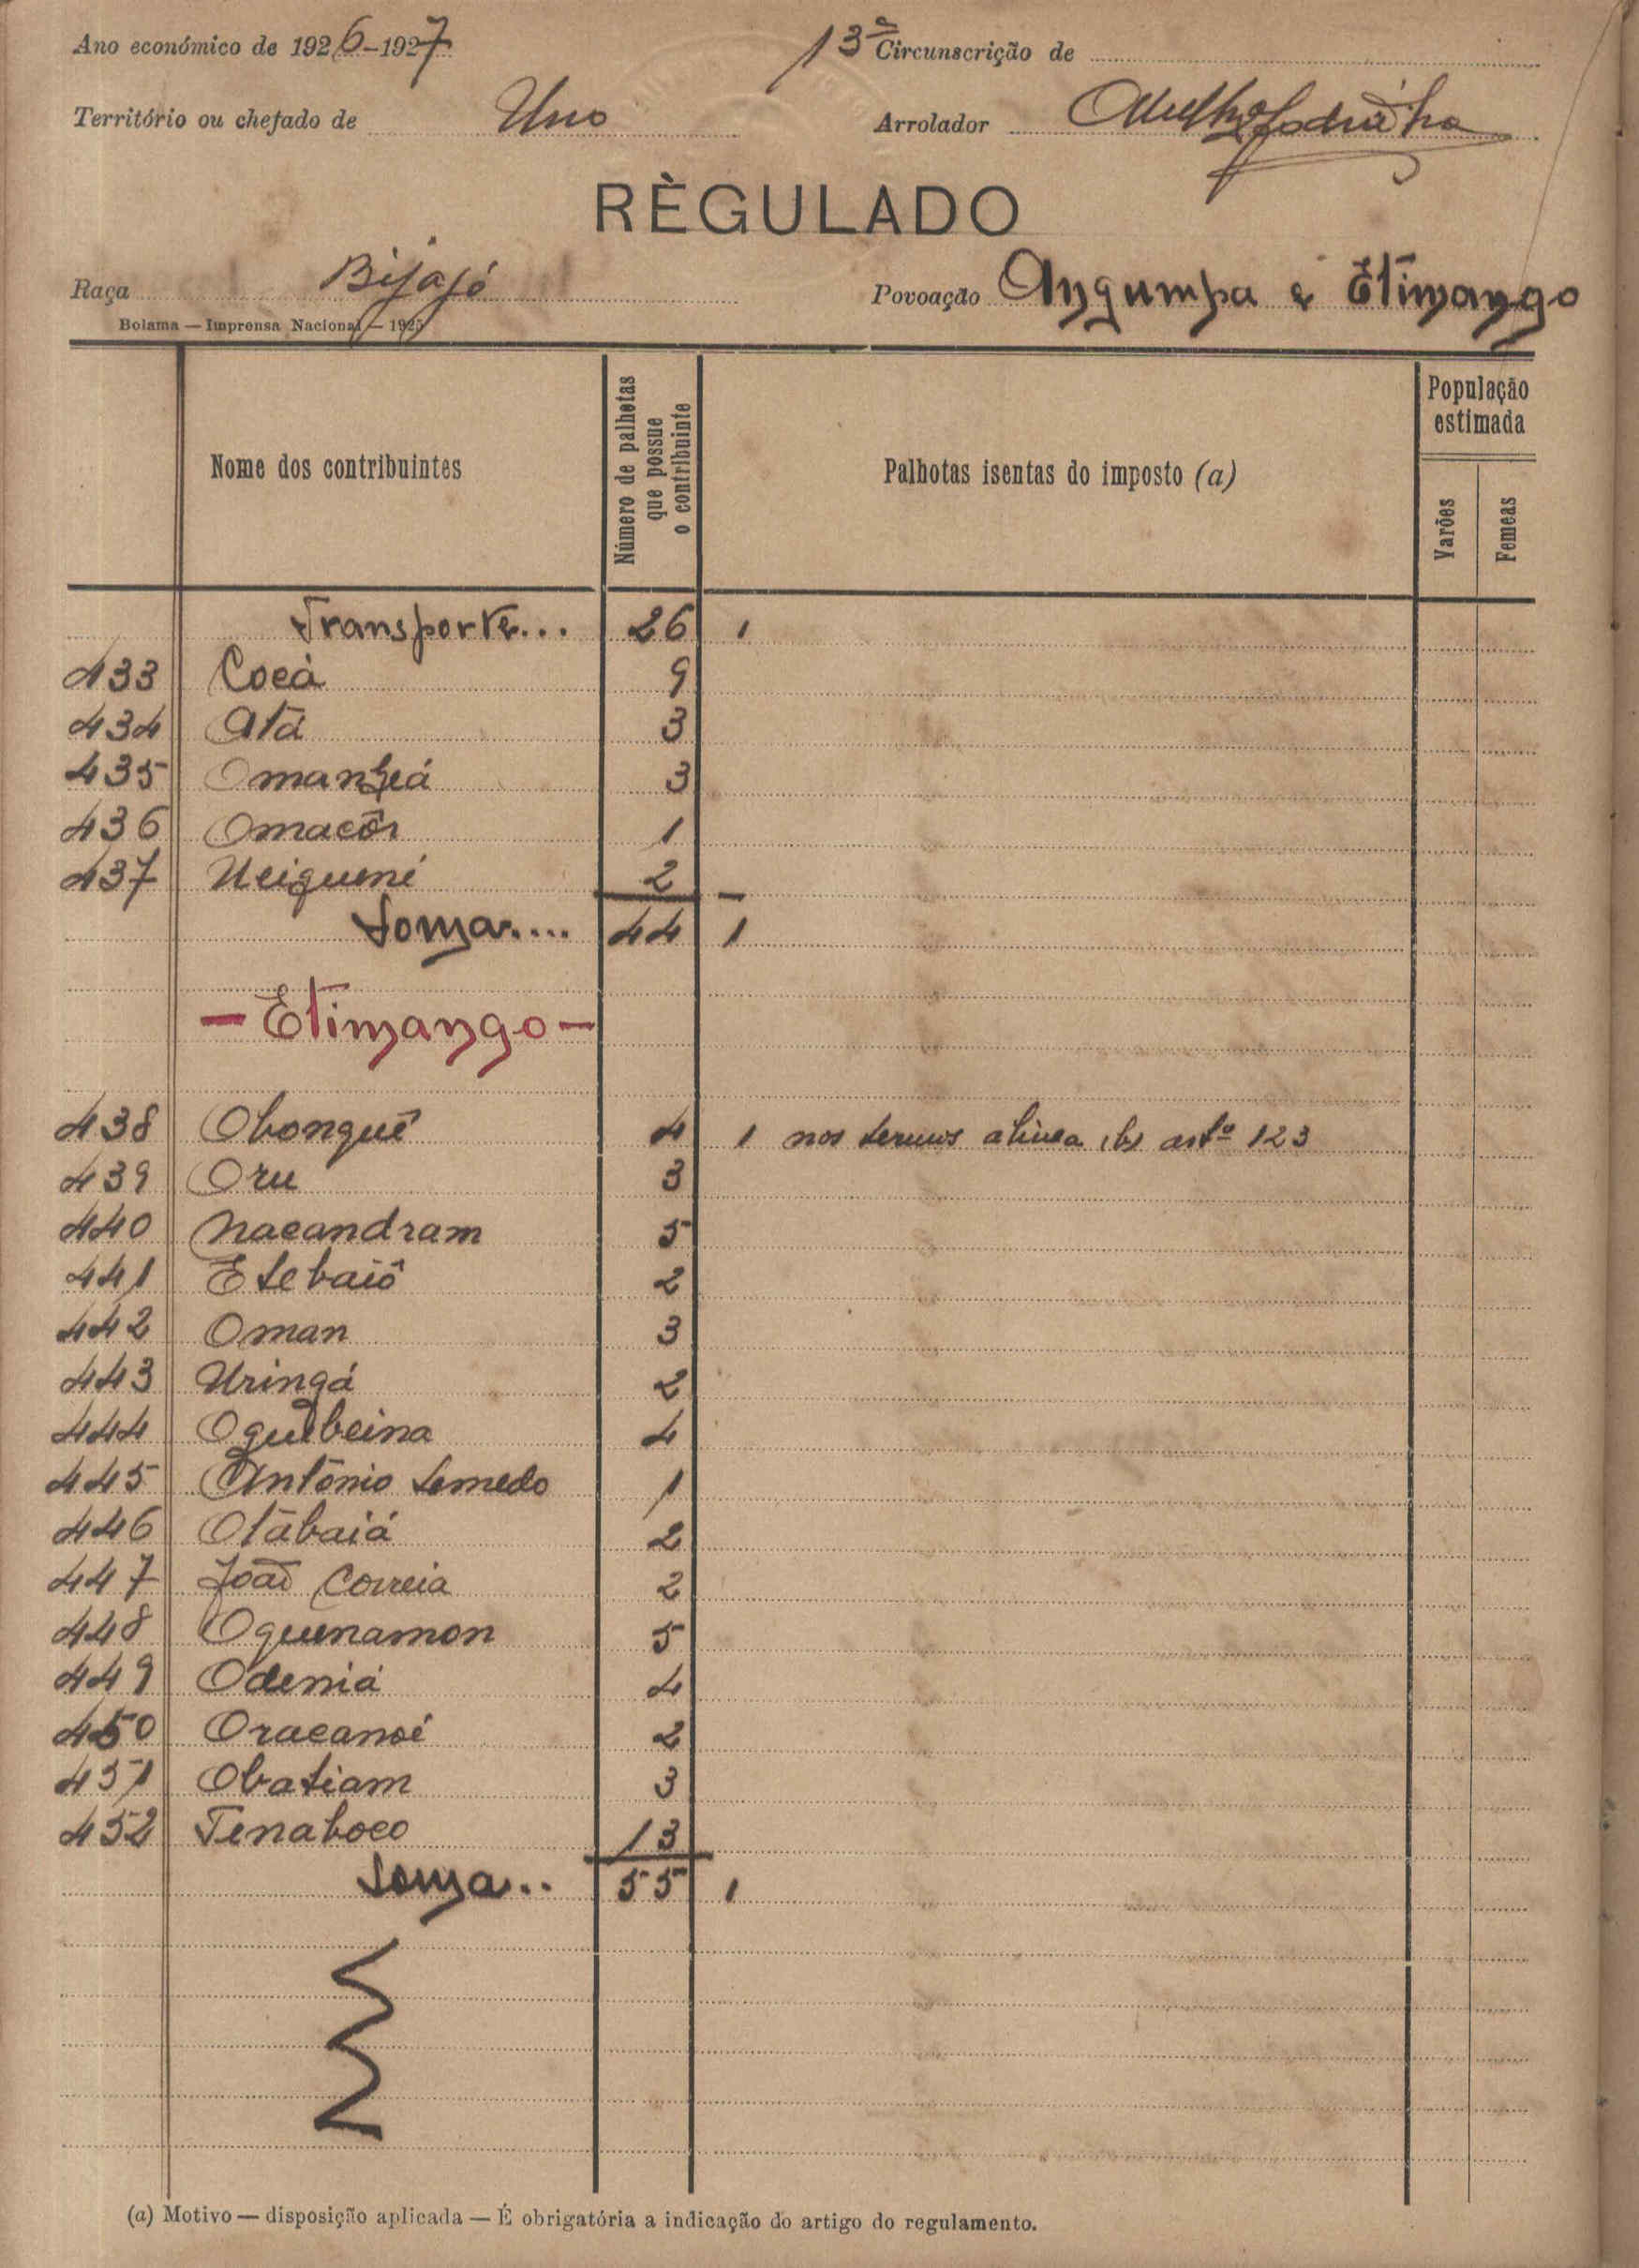 Ano económico de 1926-1927 13ª Circunscrição de
Território ou chefado de Uno Arrolador
RÈGULADO
Raça Bijajó Povoação Angumpa e Etimango
Bolama — Imprensa Nacional — 1925
Nome dos contribuintes
Número de palhotas que possue o contribuinte
Palhotas isentas do imposto (a)
População estimada
Varões
Femeas
Transporte... 26 1
433 Coeà 9
434 Atà 3
435 3
436 Omacôr 1
437 2
Soma.... 44 1
— Etimango —
438 Obonguê 4 1 nos termos alinea (b) artº 123
439 Oru 3
440 Nacandram 5
441 Etebaiô 2
442 Oman 3
443 Uringá 2
444 Oguebeina 4
445 António Semedo 1
446 Otàbaiá 2
447 João Correia 2
448 Oguenamon 5
449 Odeniá 4
450 Oracanoi 2
451 Obatiam 3
452 Tenaboco 13
Soma.. 55 1
(a) Motivo — disposição aplicada — É obrigatória a indicação do artigo do regulamento.